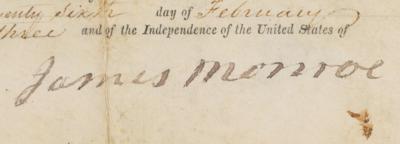 enty Sixth day of February
three and of the Independence of the United States of
James Monroe